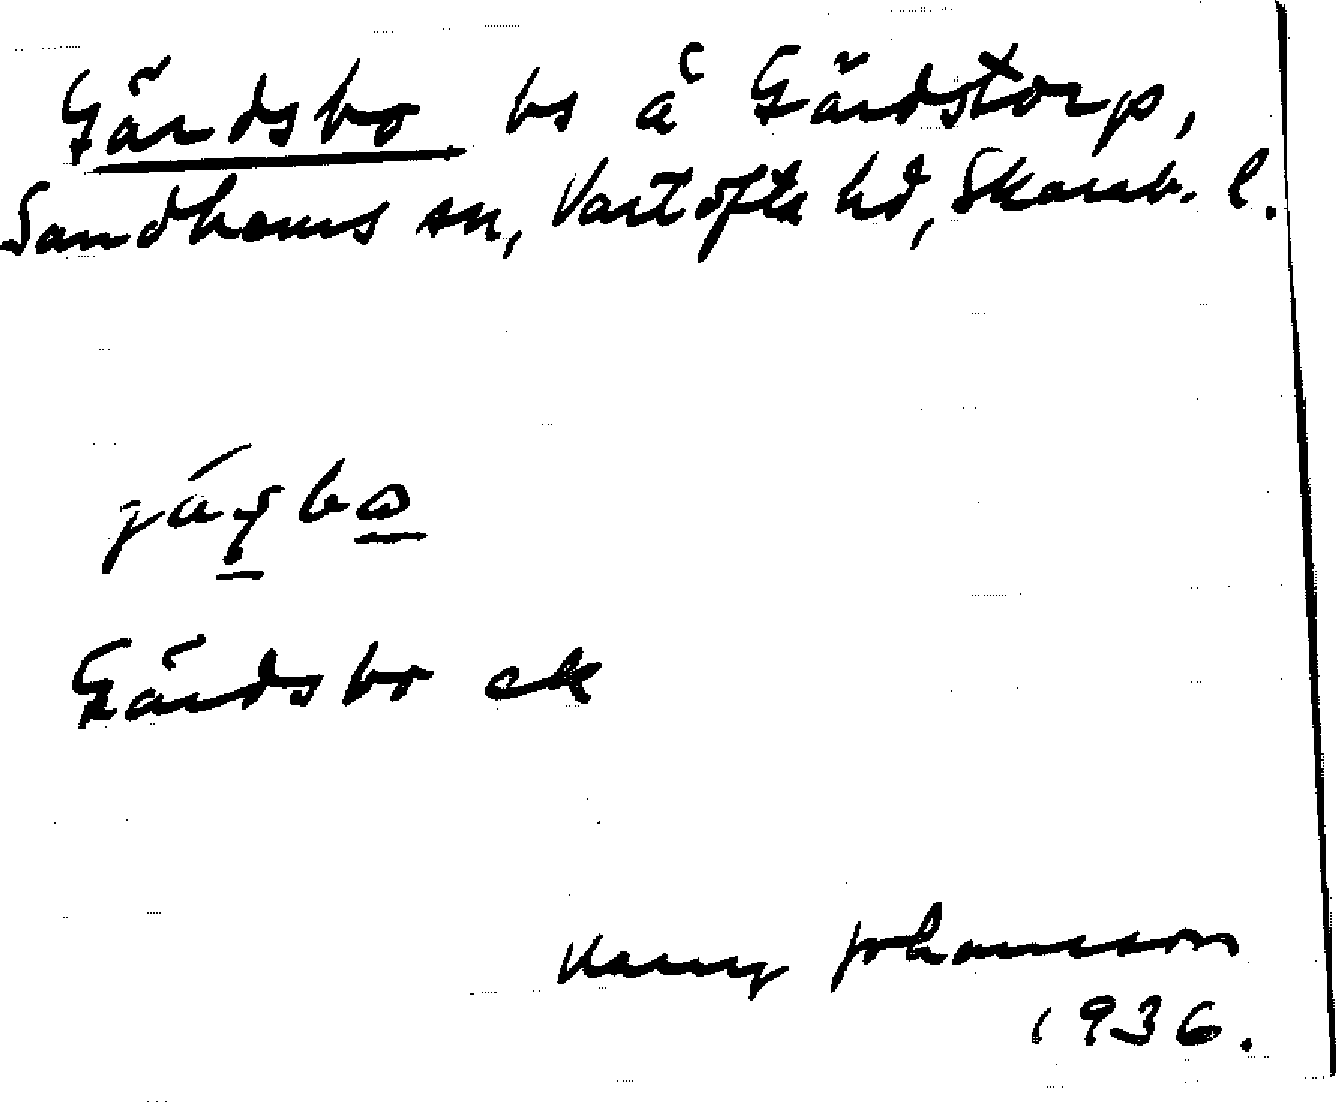 Gärdsbo bs å Gärdstorp,
Sandhems sn, Vartofta hd, Skarab. l.
Gärdsbo ek
Harry Johansson
1936.